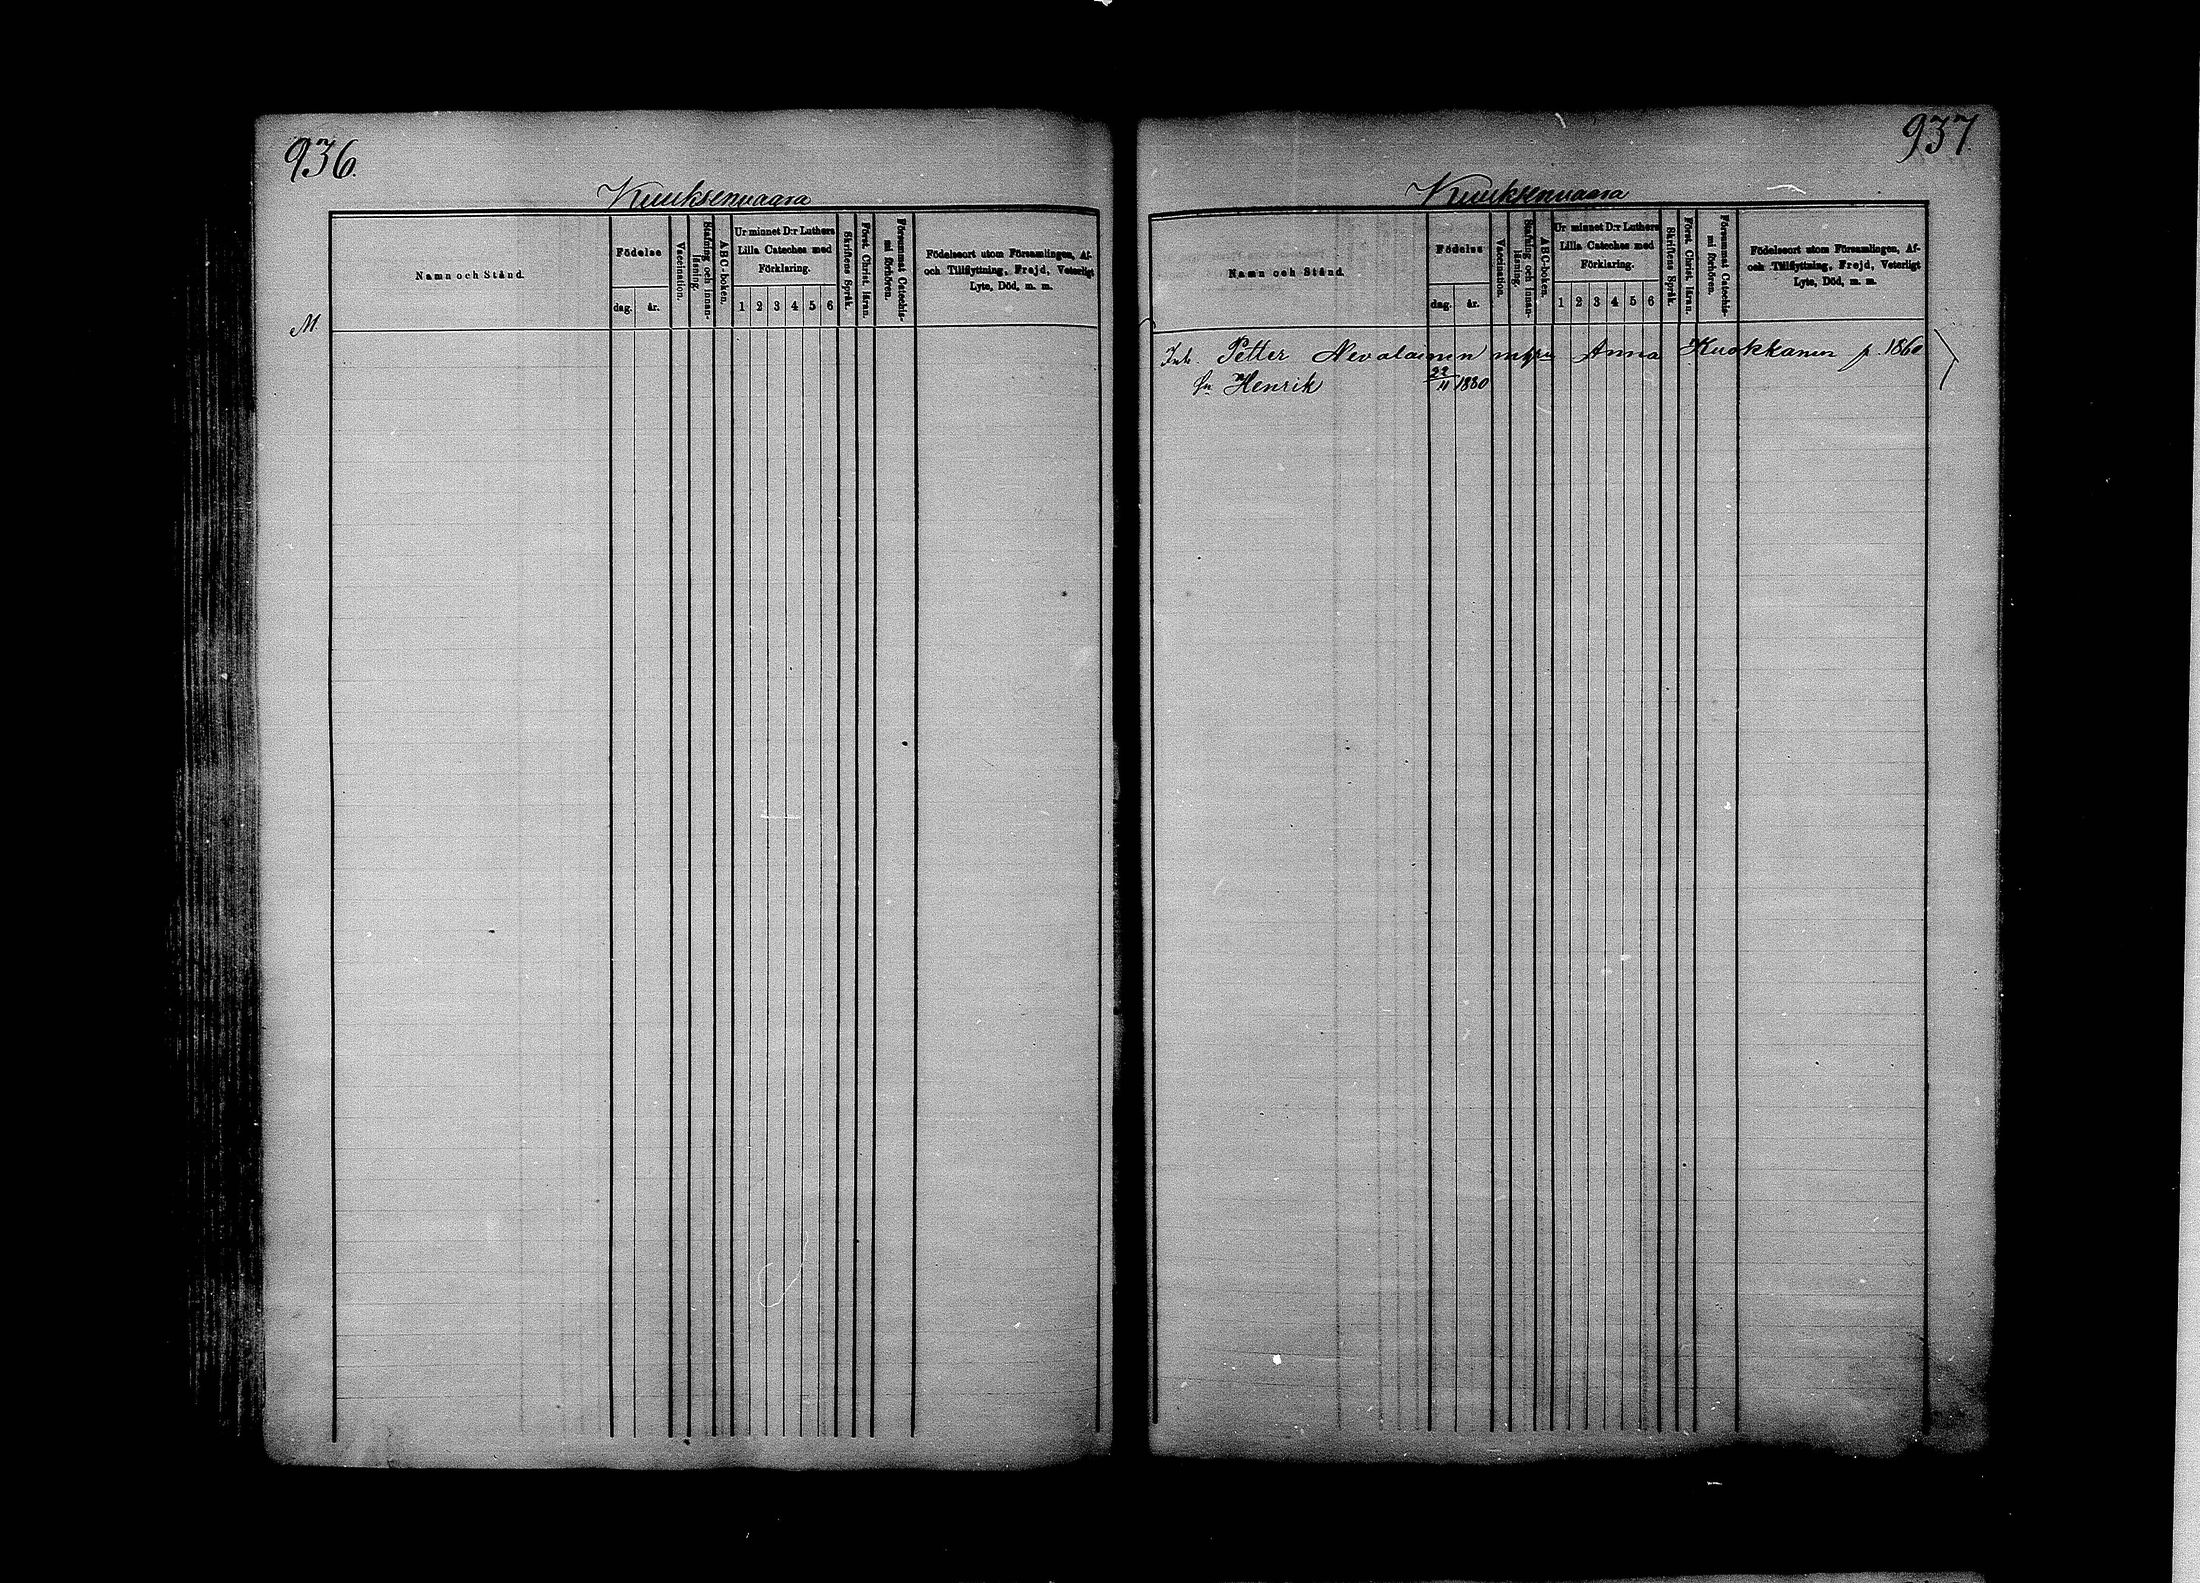 936.
Kuuksenvaara
Namn och Stånd.
Födelse
dag. år.
Vaccination.
Stafning och innan-
läsning.
ABC-boken.
Ur minnet D:r Luthers
Lilla Cateches med
Förklaring.
1 2 3 4 5 6
Skriftens Språk.
Först. Christ. läran.
Försummat Catechis-
mi förhören.
Födelseort utom Församlingen, Af-
och Tillflyttning, Frejd, Veterligt
Lyte, Död, m. m.
M.
937
Kuuksenvaara
Namn och Stånd.
Födelse
dag. år.
Vaccination.
Stafning och innan-
läsning.
ABC-boken.
Ur minnet D:r Luthers
Lilla Cateches med
Förklaring.
1 2 3 4 5 6
Skriftens Språk.
Först. Christ. läran.
Försummat Catechis-
mi förhören.
Födelseort utom Församlingen, Af-
och Tillflyttning, Frejd, Veterligt
Lyte, Död, m. m.
Inh. Petter Nevalainen Anna Kuokkanen p. 1860
sn Henrik 22/11 1880